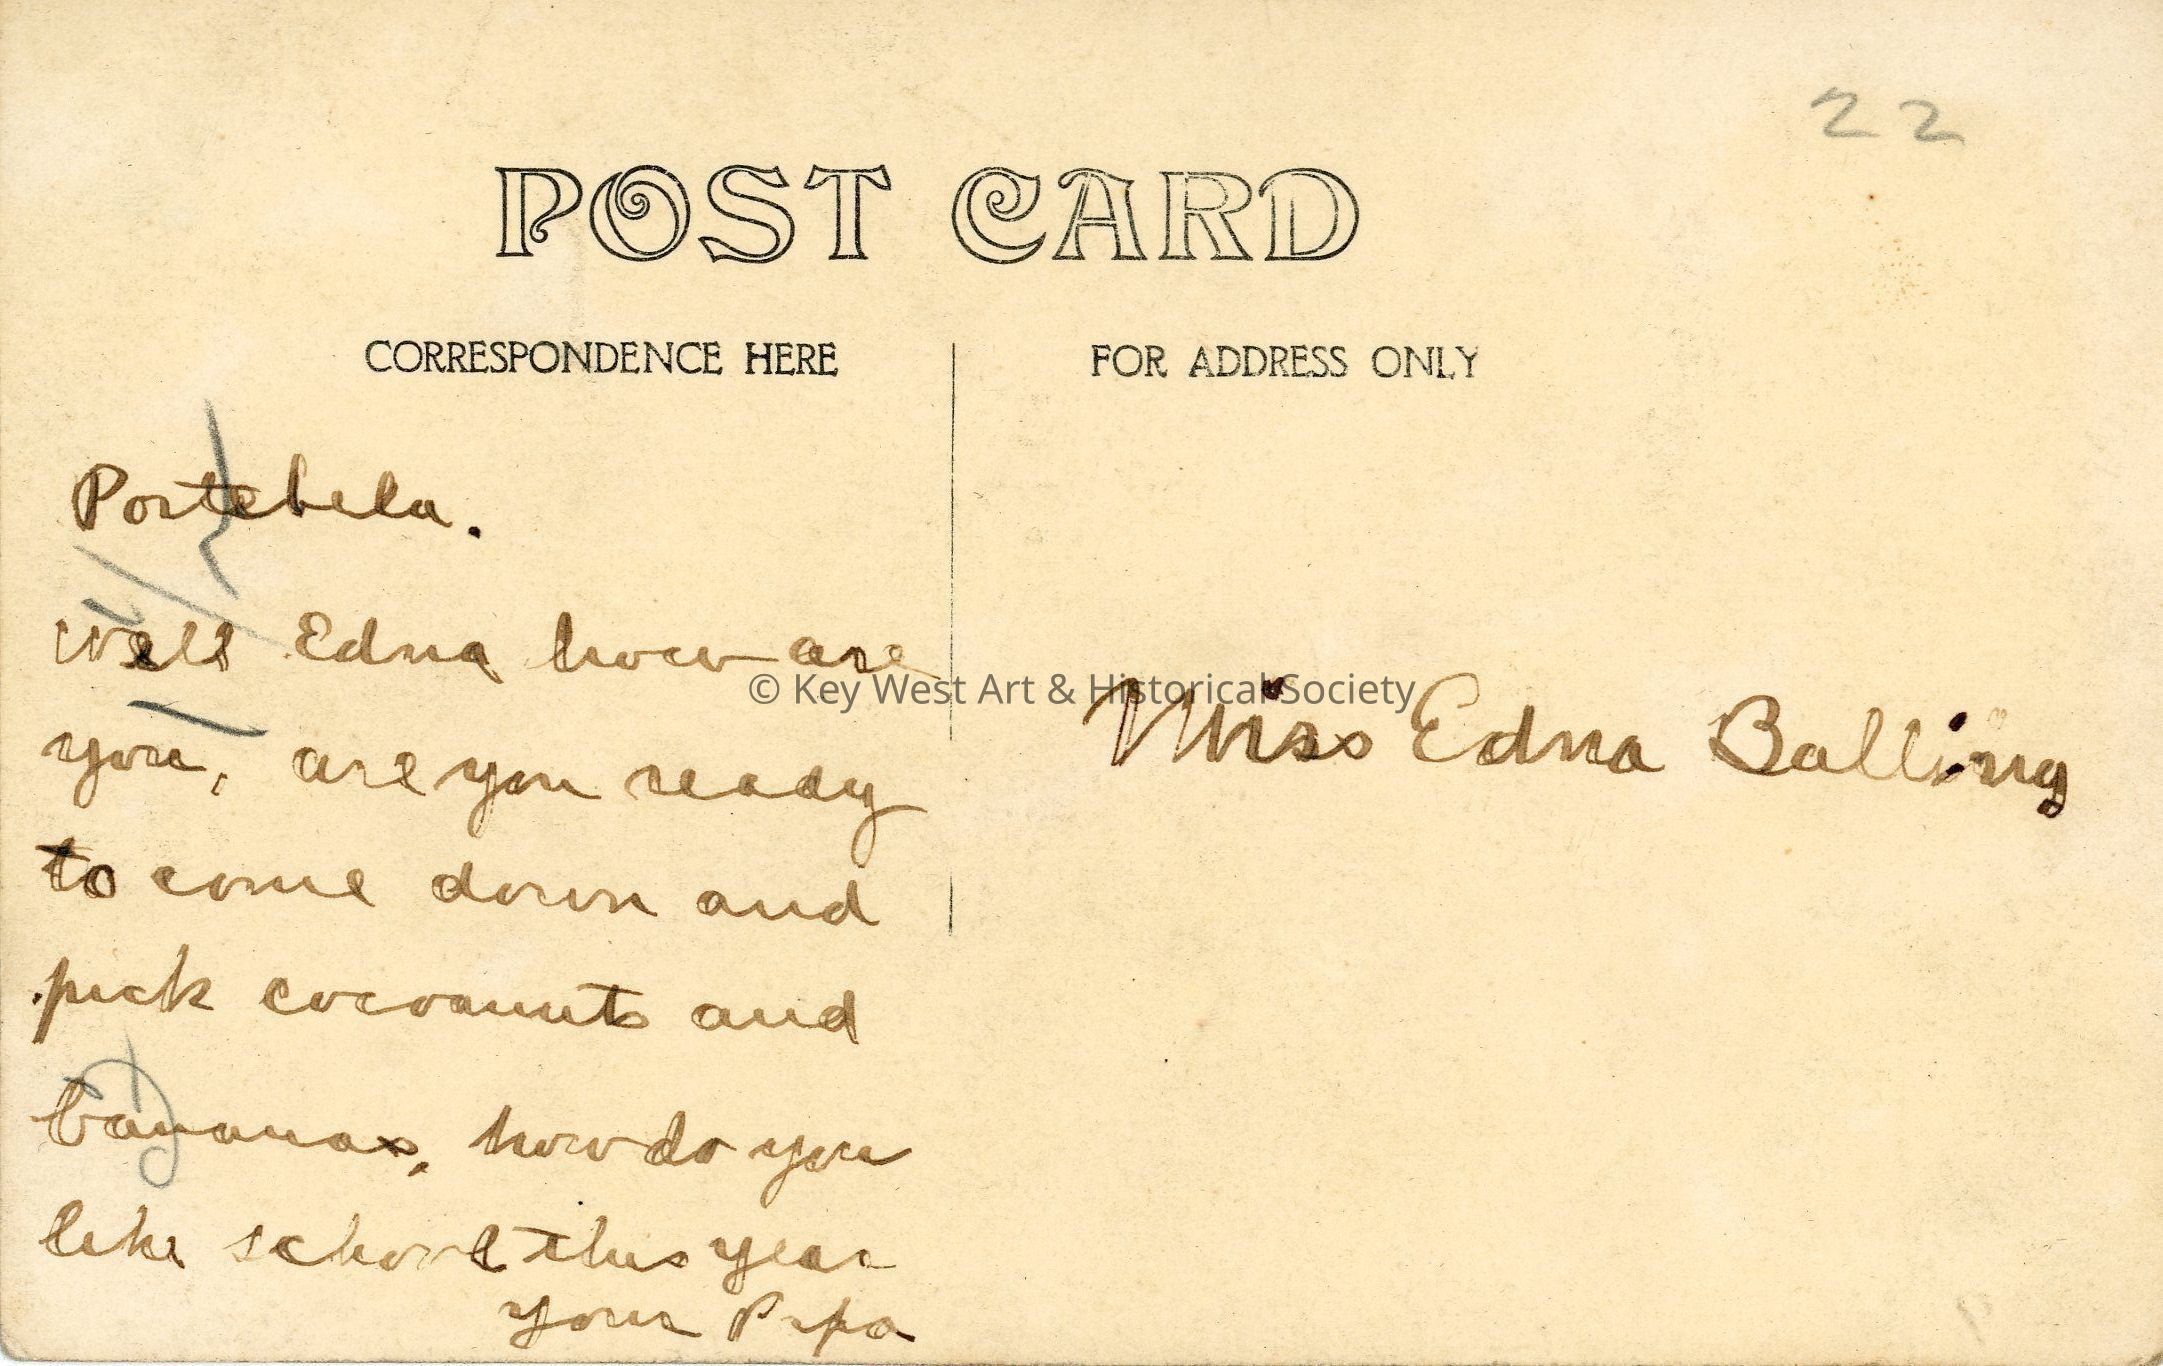 22
POST CARD
CORRESPONDENCE HERE
FOR ADDRESS ONLY
Portebela.
well Edna how are
you, are you ready
to come down and
pick cocoanuts and
bananas, how do you
like school this year
your Papa
Miss Edna Balling
© Key West Art & Historical Society